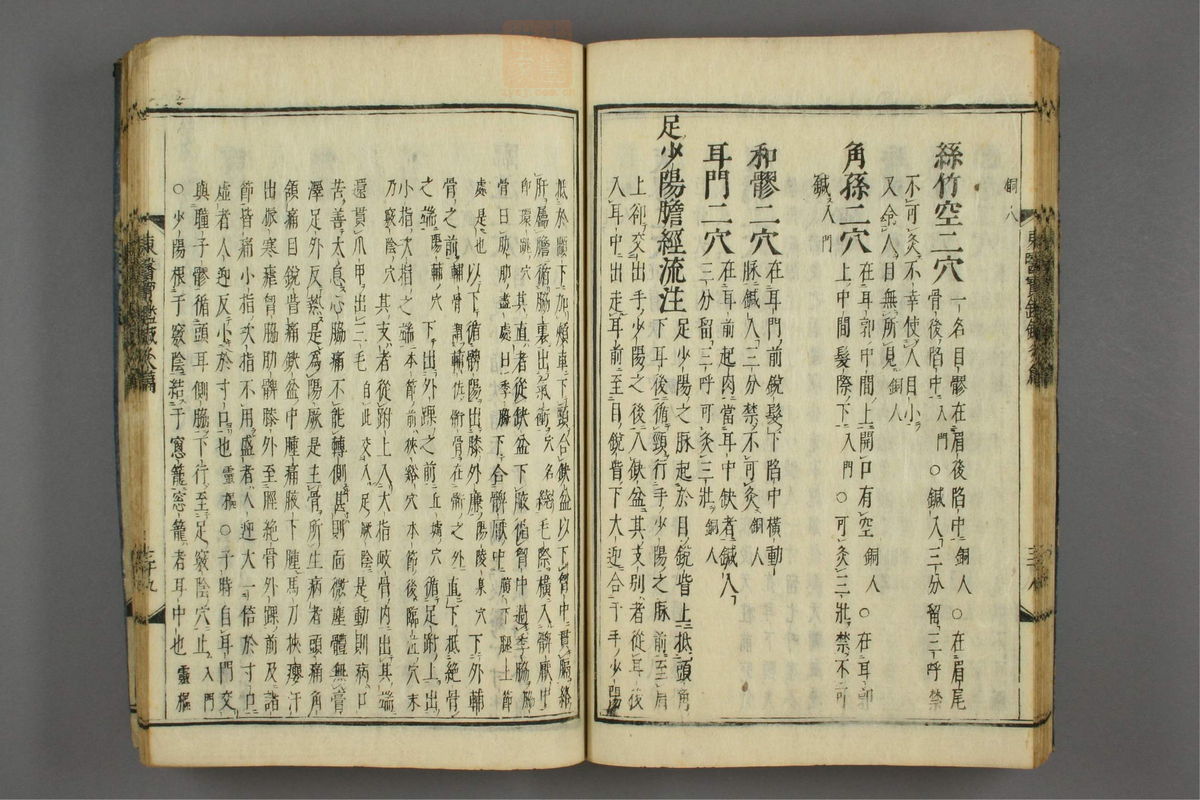 銅人
絲竹空二穴 一名目髎在眉後陷中銅人○在眉尾
骨後陷中入門○鍼入三分留三呼禁
不可灸不幸使人目小
又令人目無所見銅人
角孫二穴 在耳郭中間上開口有空銅人○在耳郭
上中間髮際下入門○可灸三壯禁不可
鍼入門
和髎二穴 在耳門前銳髮下陷中橫動
脉鍼入三分禁不可灸銅人
耳門二穴 在耳前起肉當耳中缺者鍼入
三分留三呼可灸三壯銅人
足少陽膽經流注 足少陽之脉起於目銳眥上抵頭角
下耳後循頸行手少陽之脉前至肩
上却交出手少陽之後入缺盆其支別者從耳後
入耳中出走耳前至目銳眥下大迎合于手少陽
抵於䪼下加頰車下頸合缺盆以下胷中貫膈絡
肝屬膽循脇裏出氣衝穴名繞毛際橫入髀厭中
卽環跳穴其直者從缺盆下腋循胷中過季脇脇
骨曰肋肋盡處曰季脇下合髀厭中
處是也以下循髀陽出膝外廉陽陵泉穴下外輔
骨之前輔骨謂輔佐䯒骨在䯒之外直下抵絶骨
之端陽輔穴下出外踝之前丘墟穴循足跗上出
小指次指之端本節前俠谿穴本節後臨泣穴末
乃竅陰穴其支者從跗上入大指歧骨內出其端
還貫爪甲出三毛自此交入足厥陰是動則病口
苦善太息心脇痛不能轉側甚則面微塵體無膏
澤足外反熱是爲陽厥是主骨所生病者頭痛角
頷痛目銳眥痛缺盆中腫痛腋下腫馬刀挾癭汗
出振寒瘧胷脇肋髀膝外至脛絶骨外踝前及諸
節皆痛小指次指不用盛者人迎大一倍於寸口
虛者人迎反小於寸口也靈樞○子時自耳門交
與瞳子髎循頭耳側脇下行至足竅陰穴止入門
○少陽根于竅陰結于窻籠窻籠者耳中也靈樞
東醫寶鑑鍼灸篇
三十九